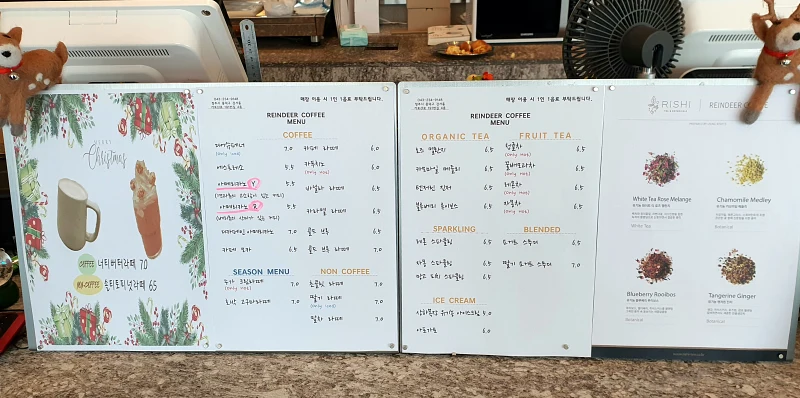 MERRY
Christmas
COFFEE 너티버터라떼 7.0
NON-COFFEE 솔티토피넛라떼 6.5
매장 이용 시 1인 1음료 부탁드립니다.
REINDEER COFFEE
MENU
COFFEE
7.0
(only ice)
에스프레소 5.5
아메리카노 Y 5.5
아메리카노 Z 5.5
디카페인 아메리카노 6.5
카페 모카 6.5
카페 라떼 6.0
카푸치노 6.0
(only hot)
바닐라 라떼 6.5
카라멜 라떼 6.5
콜드 브루 6.5
콜드 브루 라떼 7.0
SEASON MENU
누가 크림라떼 7.0
(only ice)
호박 고구마라떼 7.0
NON COFFEE
초콜릿 라떼 7.0
딸기 라떼 7.0
(only ice)
말차 라떼 7.0
매장 이용 시 1인 1음료 부탁드립니다.
REINDEER COFFEE
MENU
ORGANIC TEA
로즈 멜란지 6.5
카모마일 메들리 6.5
탠저린 진저 6.5
블루베리 루이보스 6.5
FRUIT TEA
청귤차 6.5
(only hot)
꿀배도라지차 6.5
(only hot)
레몬차 6.5
(only hot)
자몽차 6.5
(only hot)
SPARKLING
레몬 스파클링 6.5
자몽 스파클링 6.5
망고 피치 스파클링 6.5
BLENDED
요거트 스무디 6.5
딸기 요거트 스무디 7.0
ICE CREAM
상하목장 유기농 아이스크림 5.0
아포가토 6.0
RISHI | REINDEER COFFEE
White Tea Rose Melange
White Tea
Chamomile Medley
Botanical
Blueberry Rooibos
Botanical
Tangerine Ginger
Botanical